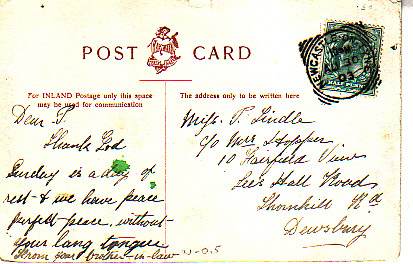 POST CARD
For INLAND Postage only this space
may be used for communication
The address only to be written here
Dear P
Thank God
Sunday is a day of
rest & we have peace
perfect peace, without
your long tongue
From your brother-in-law
Miss P. Lindle
c/o Mrs Hopper
10 Fairfield View
Lees Hall Road
Thornhill Rd
Dewsbury